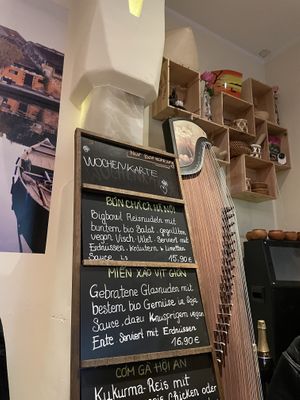 Nur Barzahlung
WOCHENKARTE
BÚN CHẢ CÁ HÀ NỘI
Bigbowl Reisnudeln mit
buntem bio Salat, gegrilltem
vegan Visch Vilet. Serviert mit
Erdnüssen. Kräutern & Limetten
Sauce 15.90€
MIẾN XÀO VỊT GIÒN
Gebratene Glasnudeln mit
bestem bio Gemüse in Soja
Sauce. dazu knusprigem vegan
Ente Serviert mit Erdnüssen
16.90€
CƠM GÀ HỘI AN
Kukurma-Reis mit
Chicken oder